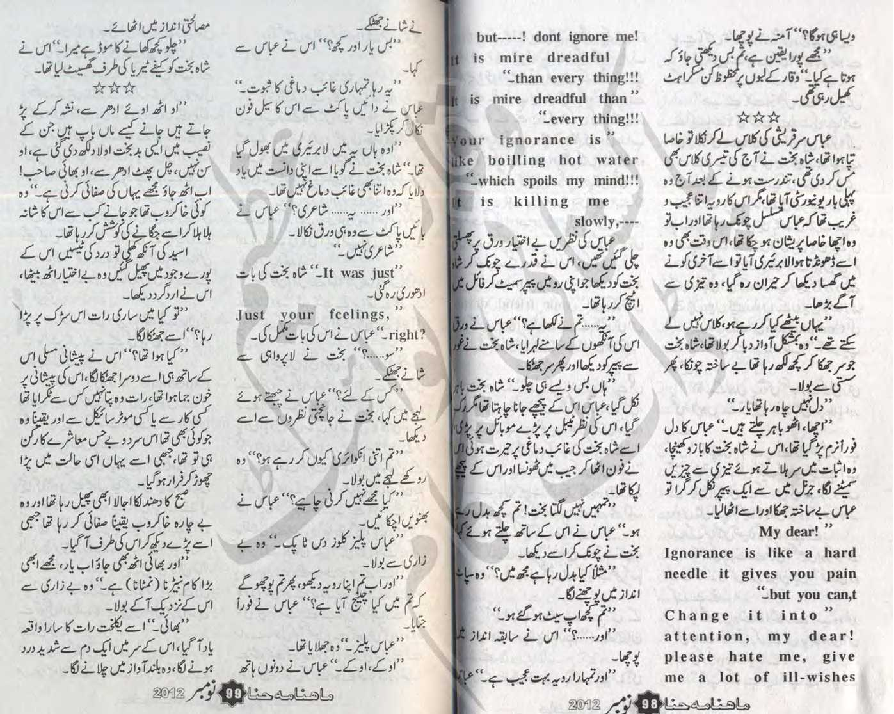 ویسا ہی ہوگا؟‘‘ آمنہ نے پوچھا۔
’’مجھے پورا یقین ہے، تم بس دیکھتی جاؤ کہ
ہوتا ہے کیا۔‘‘ وقار کے لبوں پر محظوظ کن مسکراہٹ
کھیل رہی تھی۔
☆☆☆
عباس سر قریشی کی کلاس لے کر نکلا تو خاصا
تپا ہوا تھا، شاہ بخت نے آج کی تیسری کلاس بھی
مس کر دی تھی، تندرست ہونے کے بعد آج وہ
پہلی بار یونیورسٹی آیا تھا، مگر اس کا رویہ اتنا عجیب و
غریب تھا کہ عباس مسلسل چونک رہا تھا اور اب تو
وہ اچھا خاصا پریشان ہو چکا تھا، اس وقت بھی وہ
اسے ڈھونڈتا ہوا لائبریری آیا تو اسے آخری کونے
میں گھسا دیکھ کر حیران رہ گیا، وہ تیزی سے
آگے بڑھا۔
’’یہاں بیٹھے کیا کر رہے ہو، کلاس نہیں لے
سکتے تھے۔‘‘ وہ بمشکل آواز دبا کر بولا تھا، شاہ بخت
جو سر جھکا کر کچھ لکھ رہا تھا بے ساختہ چونکا، پھر
سستی سے بولا۔
’’دل نہیں چاہ رہا تھا یار۔‘‘
’’اچھا، اٹھو باہر چلتے ہیں۔‘‘ عباس کا دل
فوراً نرم پڑ گیا تھا، اس نے شاہ بخت کا بازو کھینچا،
وہ اثبات میں سر ہلاتے ہوئے تیزی سے چیزیں
سمیٹنے لگا، جرنل میں سے ایک پیپر نکل کر گرا تو
عباس بے ساختہ جھکا اور اسے اٹھا لیا۔
My dear! ”
Ignorance is like a hard
needle it gives you pain
“..but you can,t
Change it into ”
attention, my dear!
please hate me, give
me a lot of ill-wishes
but-----! dont ignore me!
It is mire dreadful
“..than every thing!!!
It is mire dreadful than ”
“..every thing!!!
your fgnorance is ”
like boilling hot water
“..which spoils my mind!!!
It is killing me
slowly,----
عباس کی نظریں بے اختیار ورق پر پھسلتی
چلی گئیں تھیں، اس نے قدرے چونک کر شاہ
بخت کو دیکھا جو اپنی رو میں پیپر سمیٹ کر فائل میں
اٹیچ کر رہا تھا۔
’’یہ...... تم نے لکھا ہے؟‘‘ عباس نے ورق
اس کی آنکھوں کے سامنے لہرایا، شاہ بخت نے غور
سے پیپر کو دیکھا اور پھر سر جھٹکا۔
’’ہاں بس ویسے ہی چلو۔‘‘ شاہ بخت باہر
نکل گیا، عباس اس کے پیچھے جانا چاہتا تھا مگر رک
گیا، اس کی نظر ٹیبل پر پڑے موبائل پر پڑی،
اسے شاہ بخت کی غائب دماغی پر حیرت ہوئی اس
نے فون اٹھا کر جیب میں ٹھونسا اور اس کے پیچھے
لپکا تھا۔
’’تمہیں نہیں لگتا بخت! تم کچھ بدل رہے
ہو۔‘‘ عباس نے اس کے ساتھ چلتے ہوئے کہا
بخت نے چونک کر اسے دیکھا۔
’’مثلاً کیا بدل رہا ہے مجھ میں؟‘‘ وہ سپاٹ
انداز میں پوچھنے لگا۔
’’تم کچھ اپ سیٹ ہو گئے ہو۔‘‘
’’اور.....؟‘‘ اس نے سابقہ انداز میں
پوچھا۔
’’اور تمہارا رویہ بہت عجیب ہے۔‘‘ عباس
ماہنامہ حنا 98 نومبر 2012
نے شانے جھٹکے۔
’’بس یار اور کچھ؟‘‘ اس نے عباس سے
کہا۔
’’یہ رہا تمہاری غائب دماغی کا ثبوت۔‘‘
عباس نے دائیں پاکٹ سے اس کا سیل فون
نکال کر پکڑایا۔
’’اوہ ہاں یہ میں لائبریری میں بھول گیا
تھا۔‘‘ شاہ بخت نے گویا اسے اپنی دانست میں یاد
دلایا کہ وہ اتنا بھی غائب دماغ نہیں تھا۔
’’اور ...... یہ...... شاعری؟‘‘ عباس نے
بائیں پاکٹ سے وہ ہی ورق نکالا۔
’’شاعری نہیں۔‘‘
’’It was just..‘‘ شاہ بخت کی بات
ادھوری رہ گئی۔
Just your fcelings, ”
right?..‘‘ عباس نے اس کی بات مکمل کی۔
’’سو.....؟‘‘ بخت نے لاپرواہی سے
شانے جھٹکے۔
’’کس کے لئے؟‘‘ عباس نے چبھتے ہوئے
لہجے میں کہا، بخت نے جانچتی نظروں سے اسے
دیکھا۔
’’تم اتنی انکوائری کیوں کر رہے ہو؟‘‘ وہ
روکھے لہجے میں بولا۔
’’کیا مجھے نہیں کرنی چاہیے؟‘‘ عباس نے
بھنویں اچکائیں۔
’’عباس پلیز کلوز دس ٹاپک۔‘‘ وہ بے
زاری سے بولا۔
’’اور اب تم اپنا رویہ دیکھو، پھر تم پوچھو گے
کہ تم میں کیا چینج آیا ہے؟‘‘ عباس نے فوراً
جتایا۔
’’عباس پلیز۔‘‘ وہ جھلایا تھا۔
’’اوکے، اوکے۔‘‘ عباس نے دونوں ہاتھ
مصالحتی انداز میں اٹھائے۔
’’چلو کچھ کھانے کا موڈ ہے میرا۔‘‘ اس نے
شاہ بخت کو کیفے ٹیریا کی طرف گھسیٹ لیا تھا۔
☆☆☆
’’او اٹھ اوئے ادھر سے، نشہ کر کے پڑ
جاتے ہیں جانے کیسے ماں باپ ہیں جن کے
نصیب میں ایسی بدبخت اولاد لکھ دی گئی ہے، او
سن نہیں، چل پھٹ ادھر سے، او بھائی صاحب!
اب اٹھ جاؤ مجھے یہاں کی صفائی کرنی ہے۔‘‘ وہ
کوئی خاکروب تھا جو جانے کب سے اس کا شانہ
ہلا ہلا کر اسے جگانے کی کوشش کر رہا تھا۔
اسید کی آنکھ کھلی تو درد کی ٹیسیں اس کے
پورے وجود میں پھیل گئیں وہ بے اختیار اٹھ بیٹھا،
اس نے ارد گرد دیکھا۔
’’تو کیا میں ساری رات اس سڑک پر پڑا
رہا؟‘‘ اسے جھٹکا لگا۔
’’کیا ہوا تھا؟‘‘ اس نے پیشانی مسلی اس
کے ساتھ ہی اسے دوسرا جھٹکا لگا، اس کی پیشانی پر
خون جما ہوا تھا، رات وہ پتا نہیں کس سے ٹکرایا تھا
کسی کار سے یا کسی موٹر سائیکل سے اور یقیناً وہ
جو کوئی بھی تھا اس سرد و بے حس معاشرے کا رکن
ہی تو تھا، جبھی اسے یہاں اسی حالت میں پڑا
چھوڑ کر فرار ہو گیا۔
صبح کا دھندلکا اجالا ابھی پھیل رہا تھا اور وہ
بے چارہ خاکروب یقیناً صفائی کر رہا تھا جبھی
اسے پڑے دیکھ کر اس کی طرف آ گیا۔
’’اور بھائی اٹھ بھی جاؤ اب یار، مجھے ابھی
بڑا کام نبیڑنا (نمٹانا) ہے۔‘‘ وہ بے زاری سے
اس کے نزدیک آ کے بولا۔
’’بھائی۔‘‘ اسے یکلخت رات کا سارا واقعہ
یاد آ گیا، اس کے سر میں ایک دم سے شدید درد
ہونے لگا، وہ بلند آواز میں چلانے لگا۔
ماہنامہ حنا 99 نومبر 2012